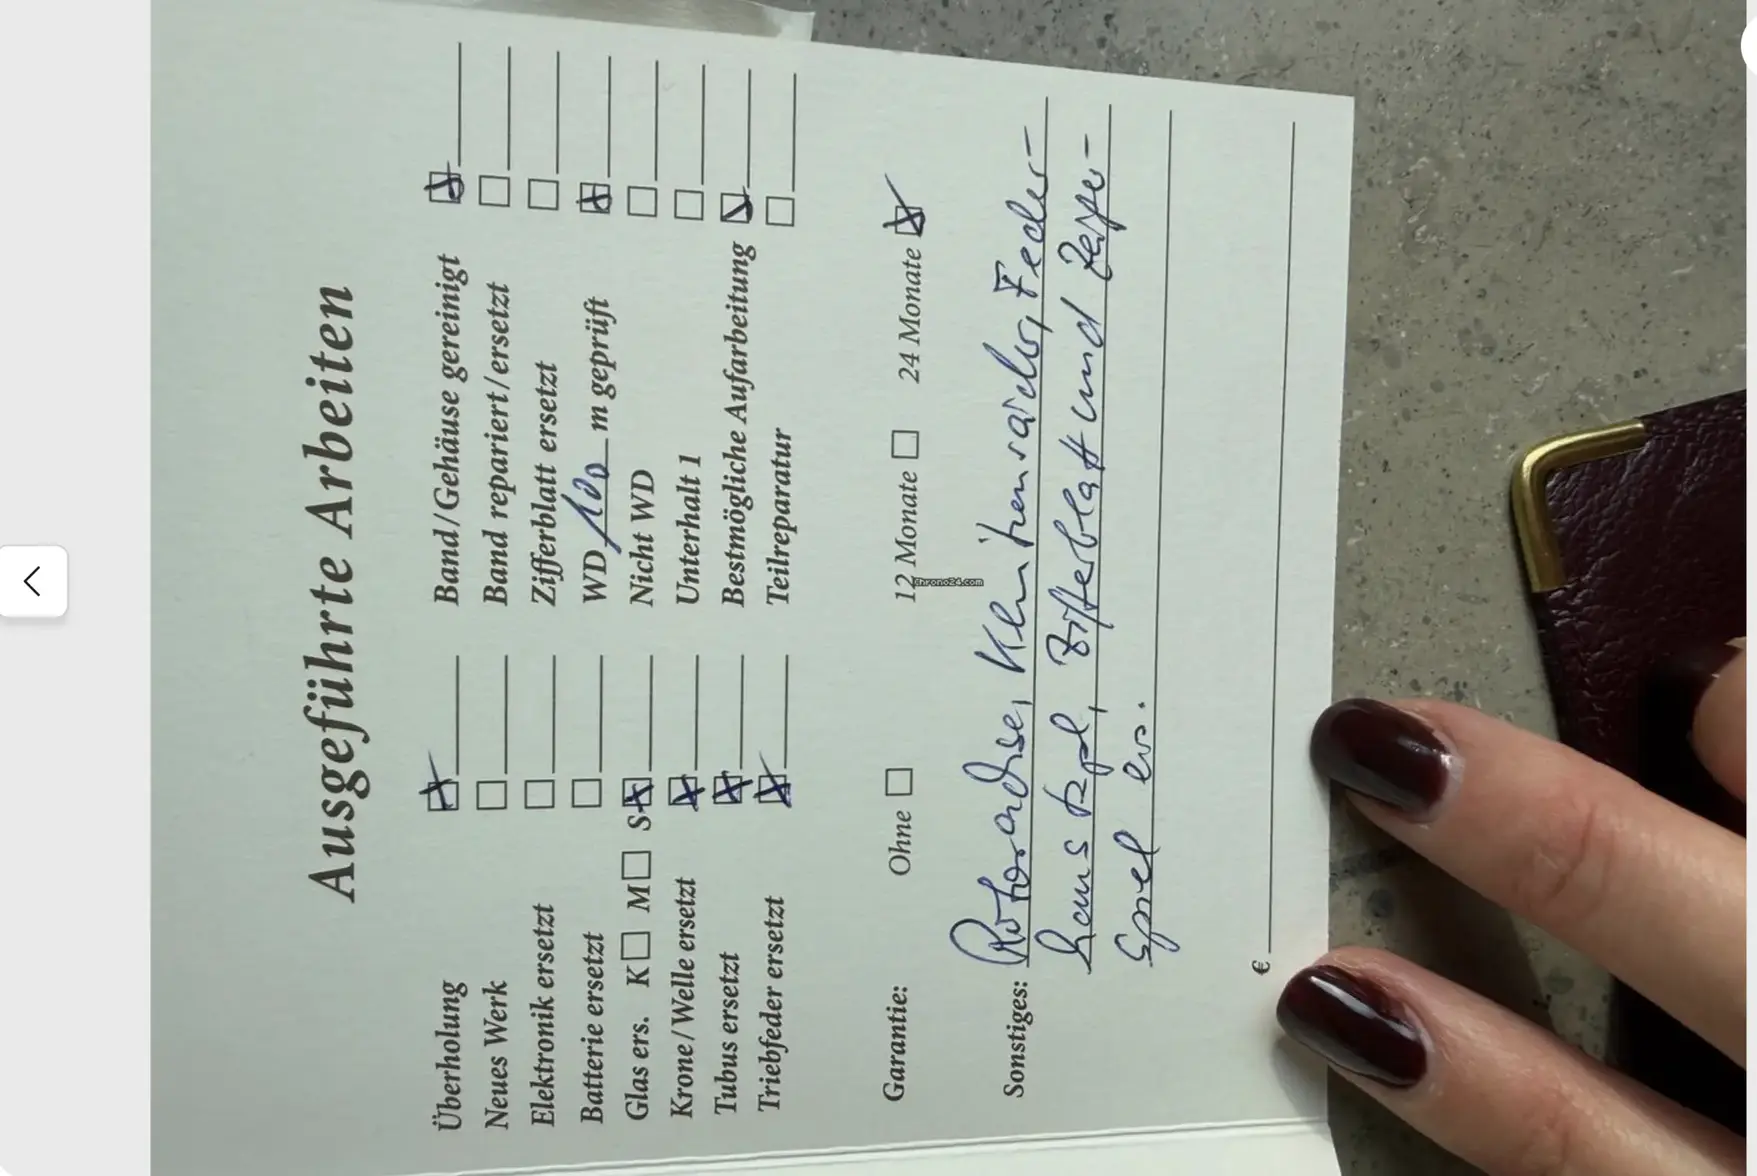 Ausgeführte Arbeiten
Überholung ☒ Band/Gehäuse gereinigt ☒
Neues Werk ☐ Band repariert/ersetzt ☐
Elektronik ersetzt ☐ Zifferblatt ersetzt ☐
Batterie ersetzt ☐ WD 100 m geprüft ☒
Glas ers. K ☐ M ☐ S ☒ Nicht WD ☐
Krone/Welle ersetzt ☒ Unterhalt 1 ☐
Tubus ersetzt ☒ Bestmögliche Aufarbeitung ☒
Triebfeder ersetzt ☒ Teilreparatur ☐
Garantie: Ohne ☐ 12 Monate ☐ 24 Monate ☒
Chrono24.com
Sonstiges: Rotorachse, Klinkenräder, Feder-
haus kpl, Zifferblatt und Zeiger-
Spiel ers.
€